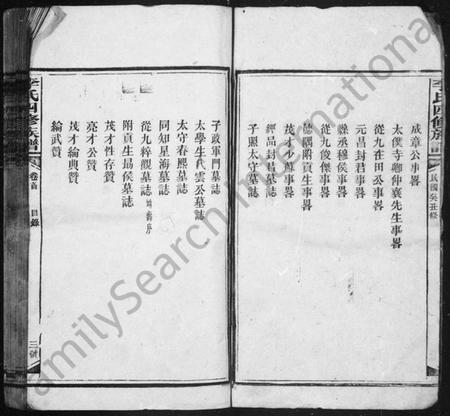 李氏四修族譜
民國癸丑修
成章公事畧
太僕寺卿仲襄先生事畧
從九在田公事畧
元昌封君事畧
縣丞穆侯事畧
從九俊傑事畧
附貢生事畧
茂才少蘇事畧
經品封君墓誌
子照太守墓誌
子政軍門墓誌
太學生代雲公墓誌
太守春熙墓誌
同知星海墓誌
從九粹觀墓誌
附貢生錫侯墓誌
茂才性存贊
亮才公贊
茂才綸典贊
綸武贊
李氏四修族譜
卷首
目錄
三號
FamilySearch International